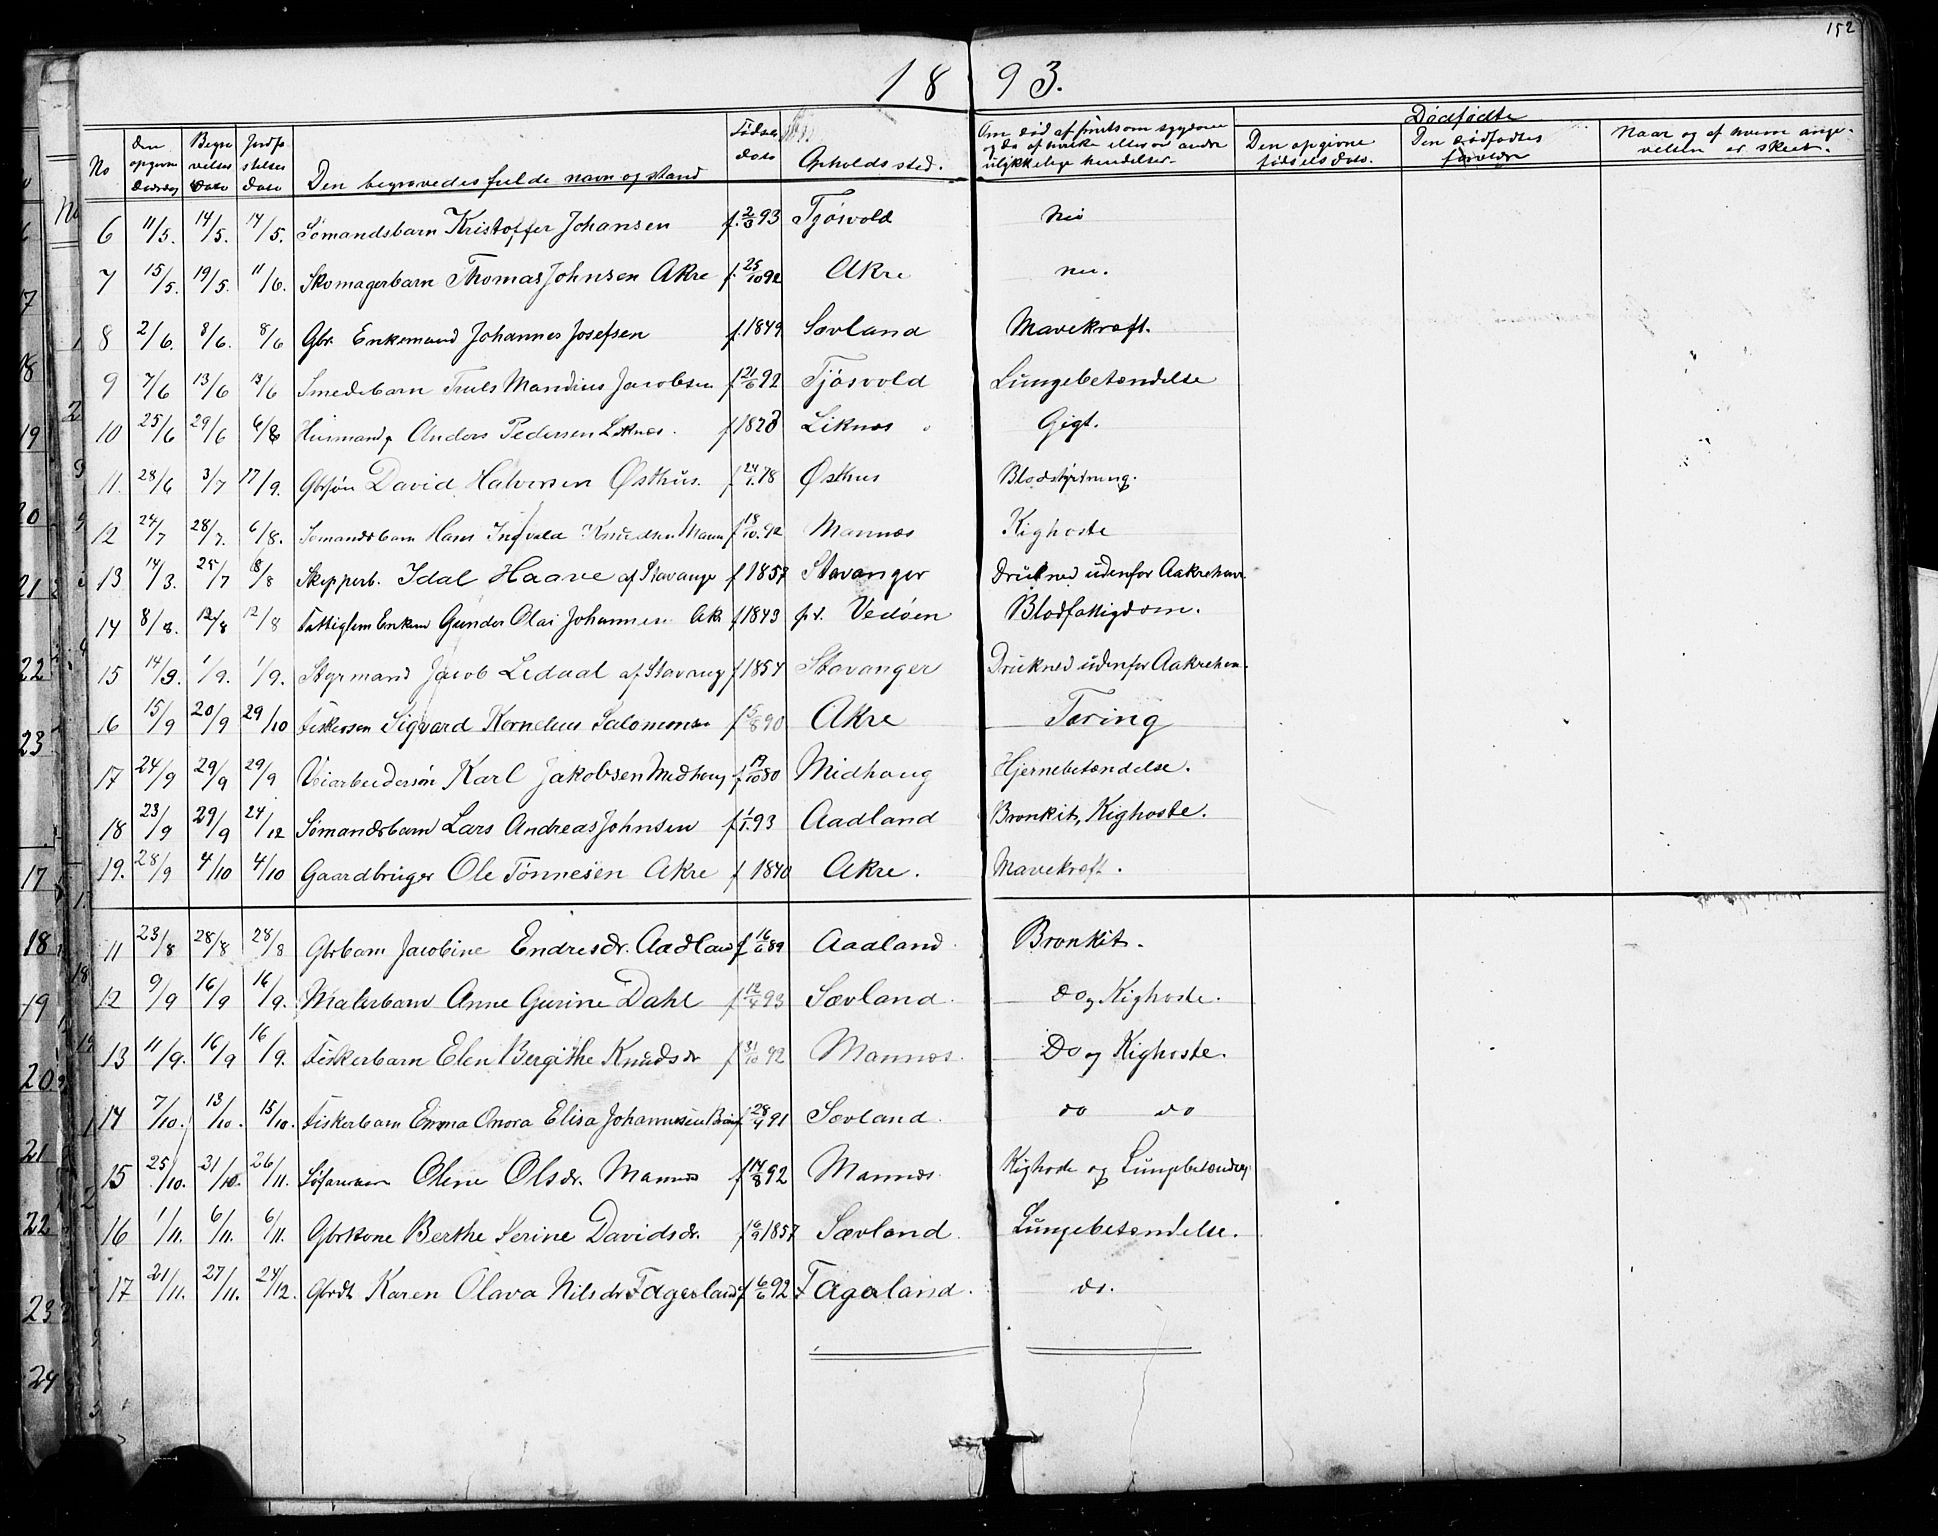 152
18 93.
No | Den opgivne Dødsdag | Begravelses Dato | Jordfæstelses Dato | Den begravedes fulde navn og stand | Fødsels dato | Opholdssted. | Om død af ... sygdom og da af hvilken eller en anden ulykkelige hendelser. | Dødfødte
Den opgivne fødsels dato. | Den dødfødtes forældre | Naar og af hvem angivelsen er skeet.
6 | 11/5. | 14/5. | 14/5. | Sømandsbarn Kristoffer Johansen | f. 2/3 93 | Tjøsvold | nei
7 | 15/5. | 19/5. | 11/6. | Skomagerbarn Thomas Johnsen Akre | f. 25/10 92 | Akre | nei.
8 | 2/6. | 8/6. | 8/6 | Gbr. Enkemand Johannes Josefsen | f. 1849 | Sævland | Mavekræft.
9 | 7/6 | 13/6 | 13/6 | Smedebarn Truls Mandius Jacobsen | f 21/6 92 | Tjøsvold | Lungebetændelse
10 | 25/6 | 29/6 | 6/8 | Husmand Anders Pedersen Liknes. | f 1828 | Liknes | Gigt.
11. | 28/6 | 3/7 | 17/9. | Gbrsøn David Halvorsen Østhus. | f 24/1.78 | Østhus | Blodstyrtning.
12 | 24/7 | 28/7. | 6/8. | Sømandsbarn Hans Ingvald Knudsen Mann | f 18/10.92 | Mannes | Kighoste
13 | 14/3. | 25/7 | 8/8 | Skipperb. Idal Haave af Stavanger | f 1857 | Stavanger | Drukned udenfor Aakrehavn.
14 | 8/8. | 12/8 | 12/8 | Fattiglem Enkem Gunder Olai Johannesen Ak | f 1843 | pr. Vedøen | Blodfattigdom.
15 | 14/3. | 1/9. | 1/9. | Styrmand Jacob Ledaal af Stavang | f 1854 | Stavanger | Druknet udenfor Aakrehavn.
16 | 15/9 | 20/9 | 29/10 | Fiskersøn Sigvard Kornelius Salomonsen | f 5/8 90 | Akre | Tæring
17 | 24/9 | 29/9 | 29/9 | Veiarbeidersøn Karl Jakobsen Medhaug | f 19/10 80 | Midhaug | Hjernebetændelse.
18 | 23/9 | 29/9 | 24/12 | Sømandsbarn Lars Andreas Johnsen | f 1/1.93 | Aadland | Bronkit, Kighoste.
19. | 28/9 | 4/10 | 4/10 | Gaardbruger Ole Tønnesen Akre | f 1840 | Akre. | Mavekræft.
11 | 23/8 | 28/8 | 28/8 | Gbrbarn Jacobine Endresdr. Aadland | f 16/6 89 | Aadland. | Bronkit.
12 | 9/9 | 16/9 | 16/9. | Malerbarn Anne Gurine Dahl | f 12/4 93 | Sævland. | do og Kighoste.
13 | 11/9. | 16/9 | 16/9. | Fiskerbarn Elen Bergithe Knudsdr | f 31/10 92 | Mannes. | Do og Kighoste.
14 | 7/10. | 13/10. | 15/10. | Fiskerbarn Emma Onora Elisa Johannessen | f 28/4 91 | Sævland. | do do
15 | 25/10. | 31/10. | 26/11. | Oline Olsdr. Mannes | f 14/8 92 | Mannes. | Kighoste og Lungebetændelse
16 | 1/11. | 6/11. | 6/11. | Gbrkone Berthe Serine Davidsdr. | f 6/9 1857 | Sævland. | Lungebetændelse.
17 | 21/11. | 27/11. | 24/12. | Gbrdtr Karen Olava Nilsdr Fagerland | f 6/6 92 | Fagerland. | do.